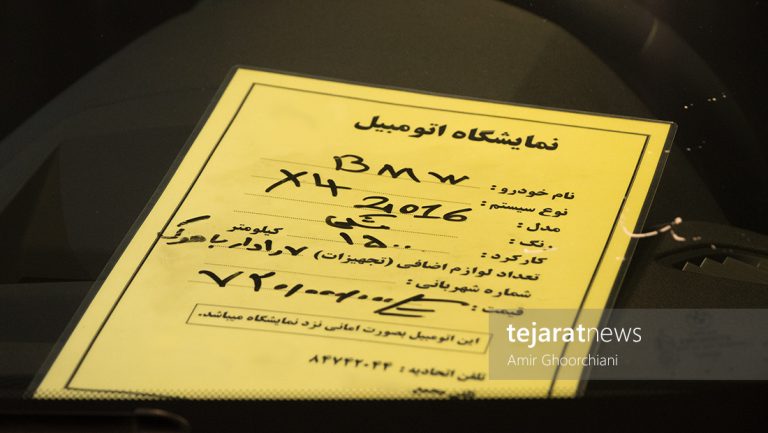 نمایشگاه اتومبیل
نام خودرو : BMW
نوع سیستم : X4
مدل : 2016
رنگ : مشکی
کارکرد : ۱۵۰۰۰ کیلومتر
تعداد لوازم اضافی (تجهیزات)
شماره شهربانی :
قیمت :
این اتومبیل بصورت امانی نزد نمایشگاه میباشد.
تلفن اتحادیه : ۸۴۷۴۲۰۴۴
tejaratnews
Amir Ghoorchiani